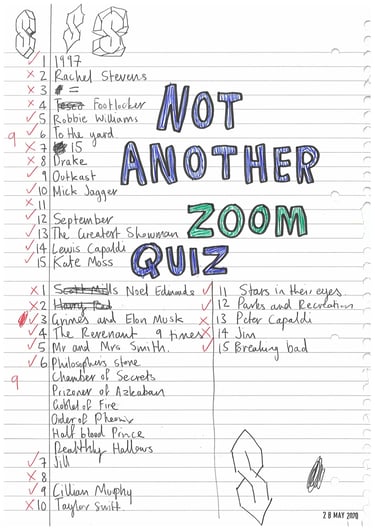 1 1997
2 Rachel Stevens
3 # =
4 Tesco Footlocker
5 Robbie Williams
6 To the yard
7 15
8 Drake
9 Outkast
10 Mick Jagger
11
12 September
13 The Greatest Showman
14 Lewis Capaldi
15 Kate Moss
9
NOT
ANOTHER
ZOOM
QUIZ
1 Scott Mills Noel Edmonds
2 Harry Red
3 Grimes and Elon Musk
4 The Revenant 9 times
5 Mr and Mrs Smith.
6 Philosophers stone
Chamber of Secrets
Prizoner of Azkaban
Goblet of Fire
Order of Pheonix
Half blood Prince
Deathly Hallows
7 Jill
8
9 Cillian Murphy
10 Taylor Swift
9
11 Stars in their eyes
12 Parks and Recreation
13 Peter Capaldi
14 Jim
15 Breaking bad
28 MAY 2020